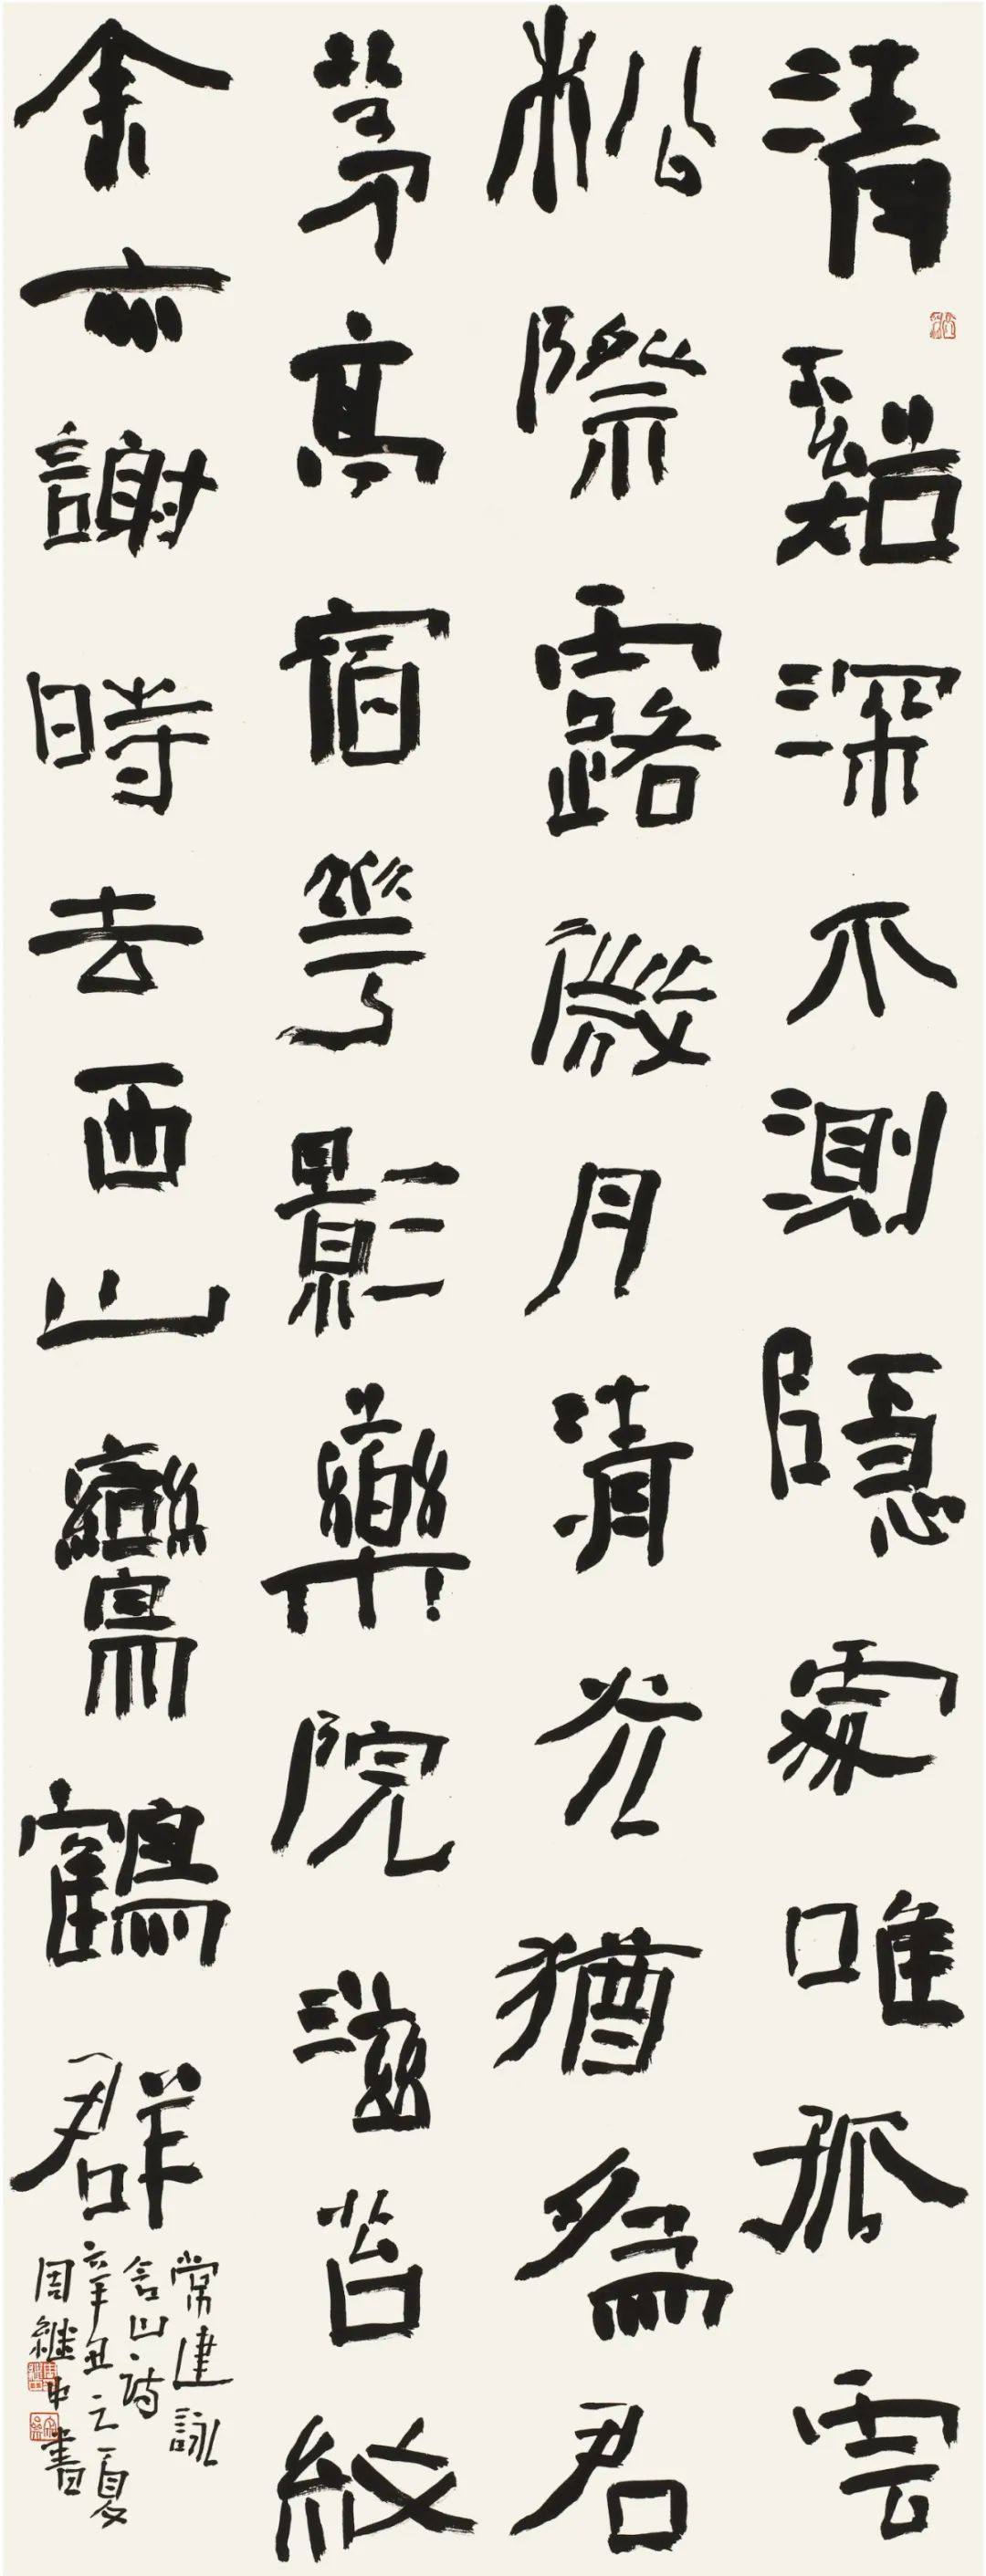 清谿深不測隱處唯孤雲
松際露微月清光猶為君
茅亭宿華影藥院滋苔紋
余亦謝時去西山鸞鶴群
常建詠
山詩
辛丑之夏
周継中書